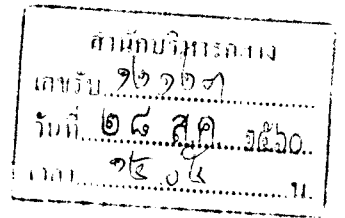 สำนักบริหารกลาง
เลขรับ
วันที่ ๒๘ ส.ค. ๒๕๖๐
เวลา น.